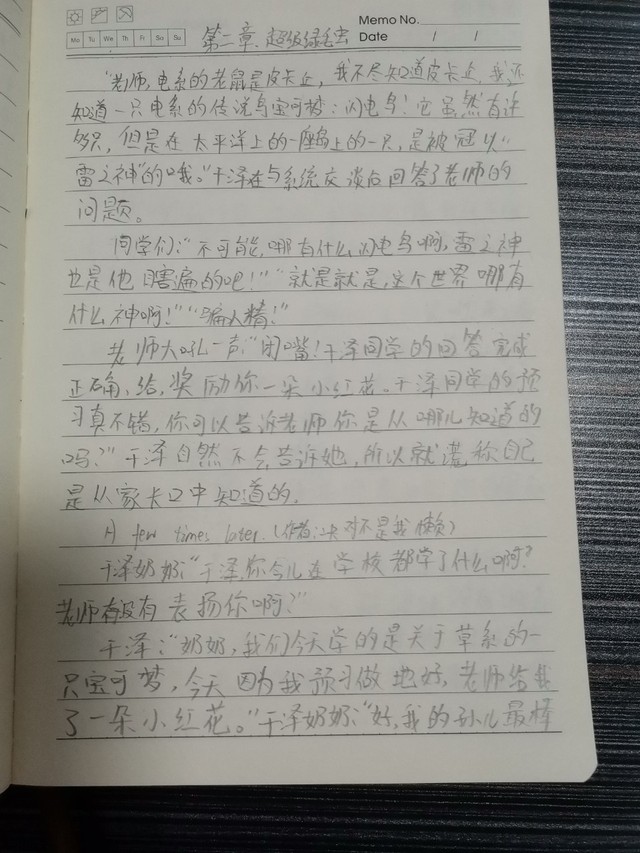 Memo No.
Mo Tu We Th Fr Sa Su
Date / /
第二章.超级绿毛虫
"老师,电系的老鼠是皮卡丘,我不尽知道皮卡丘,我还
知道一只电系的传说鸟宝可梦:闪电鸟!它虽然有许
多只,但是在太平洋上的一座岛上的一只,是被冠以"
雷之神"的哦。"于泽在与系统交谈后回答了老师的
问题。
同学们:"不可能,哪有什么闪电鸟啊,雷之神
也是他瞎遍的吧!""就是就是,这个世界哪有
什么神啊!""骗人精!"
老师大吼一声:"闭嘴!于泽同学的回答完成
正确,给,奖励你一朵小红花。于泽同学的预
习真不错,你可以告诉老师你是从哪儿知道的
吗?"于泽自然不会告诉她,所以就谎称自己
是从家长口中知道的.
A few times later.(作者:决对不是我懒)
于泽奶奶:"于泽,你今儿在学校都学了什么啊?
老师有没有表扬你啊?"
于泽:"奶奶,我们今天学的是关于草系的一
只宝可梦,今天因为我预习做地好,老师给我
了一朵小红花。"于泽奶奶:"好,我的孙儿最棒